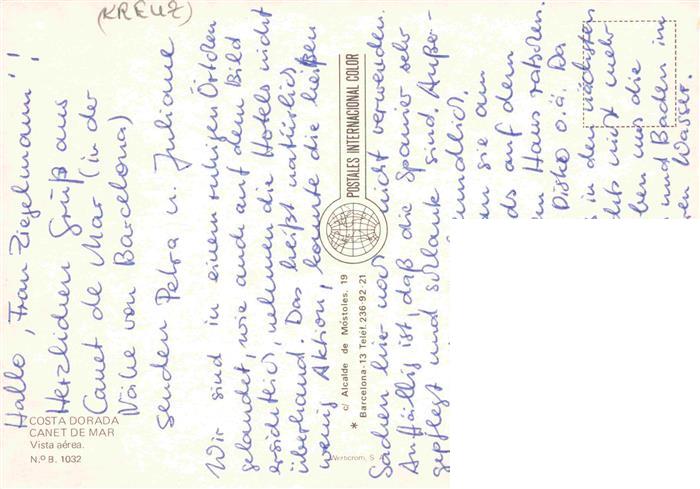 (KREUZ)
Hallo, Frau Ziegelmann!
Herzlichen Gruß aus
Canet de Mar (in der
Nähe von Barcelona)
senden Petra u. Juliane
Wir sind in einem ruhigen Örtchen
gelandet, wie auch auf dem Bild
ersichtlich, nehmen die Hotels nicht
überhand. Das heißt natürlich
wenig Aktion, konnte die heißen
Sachen hier noch nicht verwenden.
Auffällig ist, daß die Spanier sehr
gepflegt und schlank sind. Außer-
undlich.
sie am
ds auf dem
Haus ratschen.
Disko o.ä. Da
in den nächsten
nicht mehr
uns die
und Baden im
Wasser
COSTA DORADA
CANET DE MAR
Vista aérea.
N.º B. 1032
POSTALES INTERNACIONAL COLOR
c/ Alcalde de Móstoles, 19
* Barcelona-13 Teléf. 236-92-21